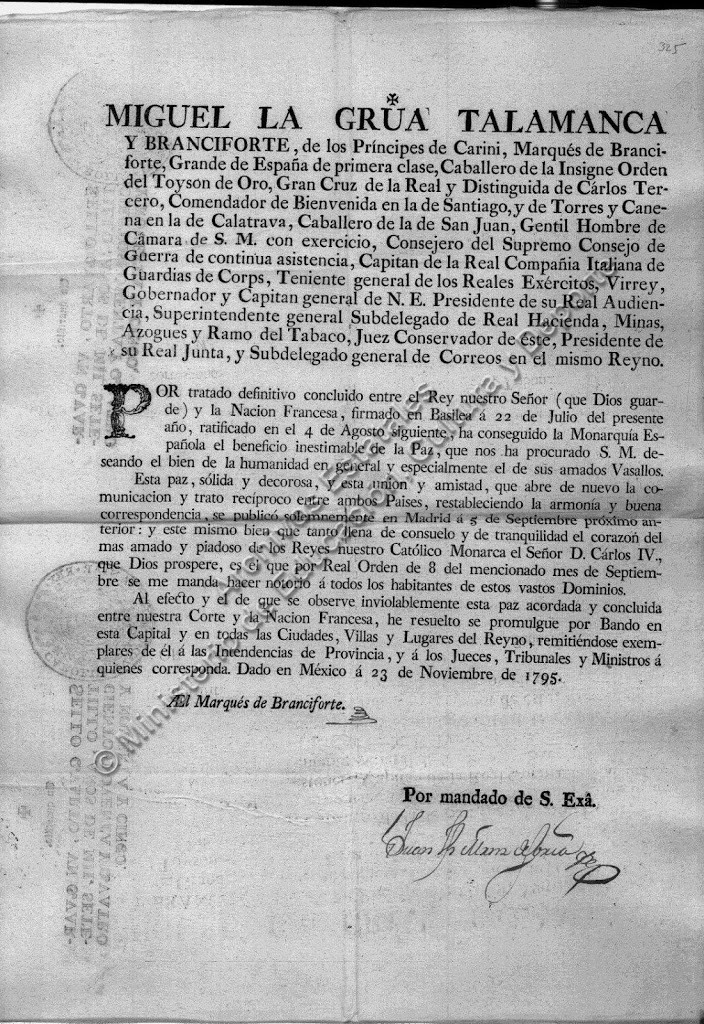 325
✠
MIGUEL LA GRŪA TALAMANCA
Y BRANCIFORTE, de los Príncipes de Carini, Marqués de Branci-
forte, Grande de España de primera clase, Caballero de la Insigne Orden
del Toyson de Oro, Gran Cruz de la Real y Distinguida de Cárlos Ter-
cero, Comendador de Bienvenida en la de Santiago, y de Torres y Cane-
na en la de Calatrava, Caballero de la de San Juan, Gentil Hombre de
Cámara de S. M. con exercicio, Consejero del Supremo Consejo de
Guerra de continua asistencia, Capitan de la Real Compañia Italiana de
Guardias de Corps, Teniente general de los Reales Exércitos, Virrey,
Gobernador y Capitan general de N. E. Presidente de su Real Audien-
cia, Superintendente general Subdelegado de Real Hacienda, Minas,
Azogues y Ramo del Tabaco, Juez Conservador de éste, Presidente de
su Real Junta, y Subdelegado general de Correos en el mismo Reyno.
POR tratado definitivo concluido entre el Rey nuestro Señor (que Dios guar-
de) y la Nacion Francesa, firmado en Basilea á 22 de Julio del presente
año, ratificado en el 4 de Agosto siguiente, ha conseguido la Monarquía Es-
pañola el beneficio inestimable de la Paz, que nos ha procurado S. M. de-
seando el bien de la humanidad en general y especialmente el de sus amados Vasallos.
Esta paz, sólida y decorosa, y esta union y amistad, que abre de nuevo la co-
municacion y trato recíproco entre ambos Paises, restableciendo la armonía y buena
correspondencia, se publicó solemnemente en Madrid á 5 de Septiembre próximo an-
terior: y este mismo bien que tanto llena de consuelo y de tranquilidad el corazon del
mas amado y piadoso de los Reyes nuestro Católico Monarca el Señor D. Cárlos IV.,
que Dios prospere, es el que por Real Orden de 8 del mencionado mes de Septiem-
bre se me manda hacer notorio á todos los habitantes de estos vastos Dominios.
Al efecto y el de que se observe inviolablemente esta paz acordada y concluida
entre nuestra Corte y la Nacion Francesa, he resuelto se promulgue por Bando en
esta Capital y en todas las Ciudades, Villas y Lugares del Reyno, remitiéndose exem-
plares de él á las Intendencias de Provincia, y á los Jueces, Tribunales y Ministros á
quienes corresponda. Dado en México á 23 de Noviembre de 1795.
Æl Marqués de Branciforte.
Por mandado de S. Exâ.
© Ministerio de Educación, Cultura y Deporte
Archivos Estatales